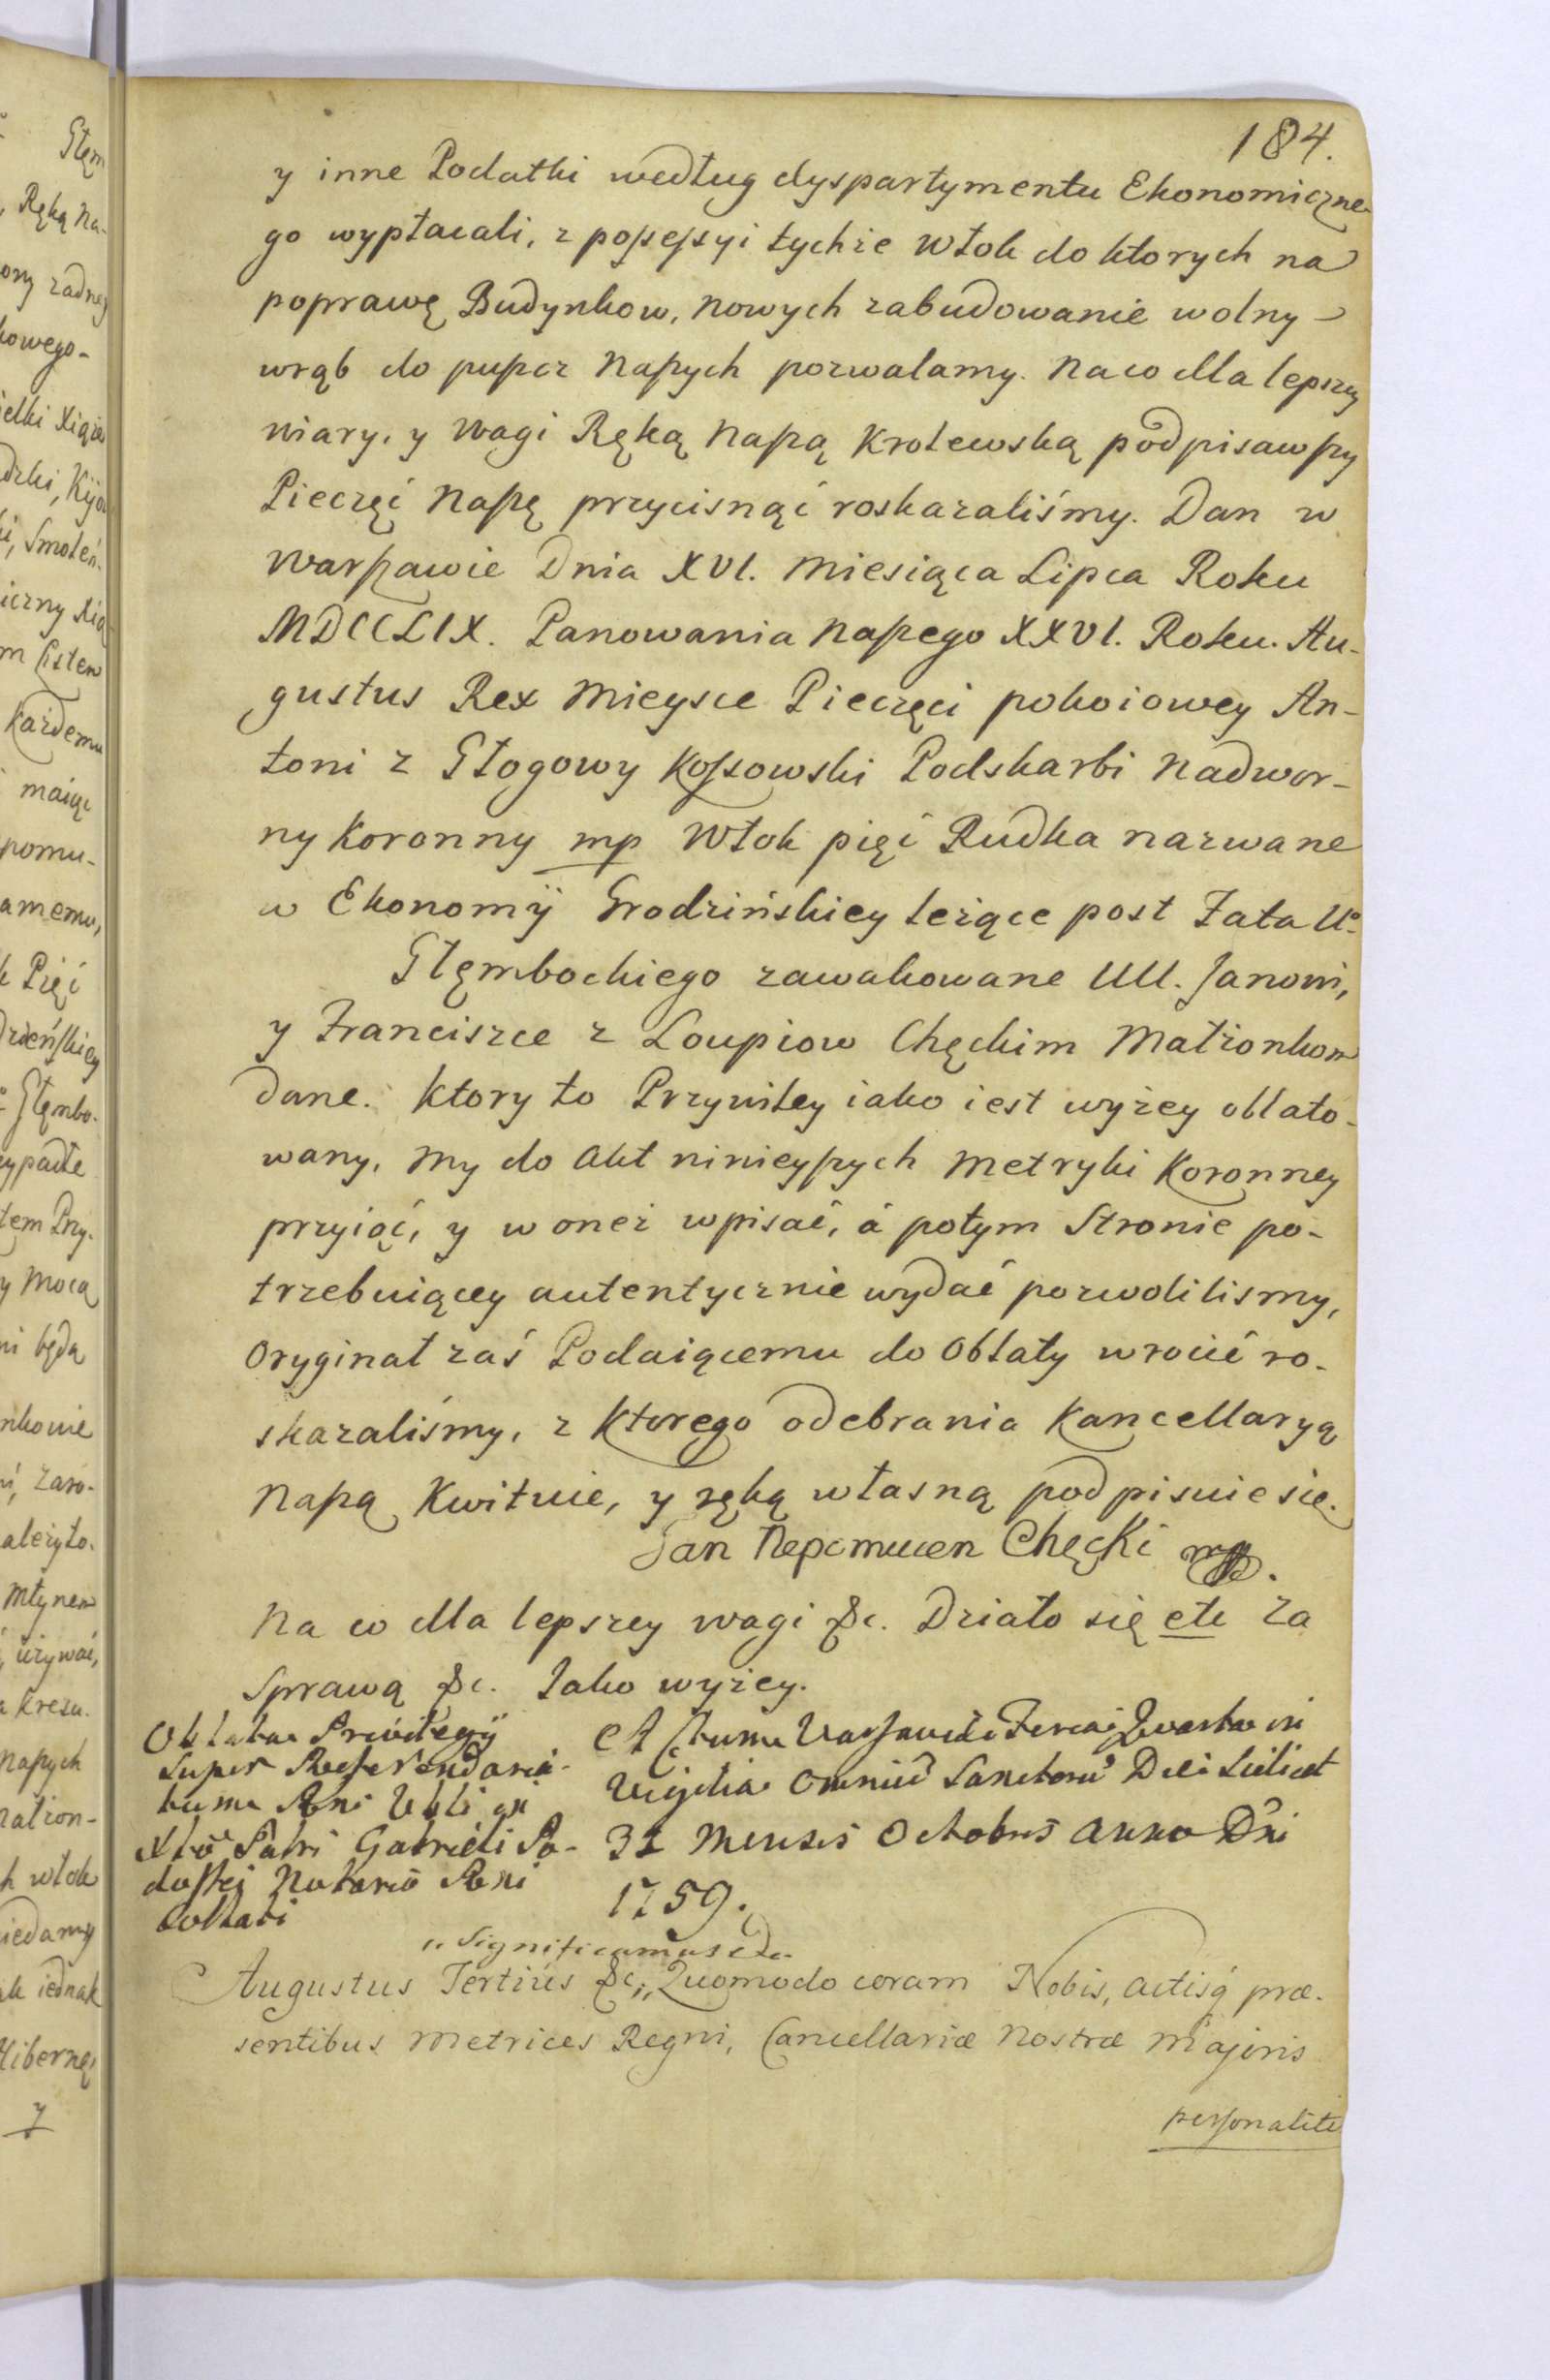 184.
y inne Podatki według dyspartymentu Ekonomiczne-
go wypłacali, z possessyi tychże włok do ktorych na
poprawę Budynkow, nowych zabudowanie wolny
wrąb do puszcz naszych pozwalamy. Na co dla lepszey
wiary, y wagi Ręką naszą Krolewską podpisawszy
Pieczęć naszę przycisnąć roskazaliśmy. Dan w
Warszawie Dnia XVI. Miesiąca Lipca Roku
MDCCLIX. Panowania naszego XXVI. Roku. Au-
gustus Rex Mieysce Pieczęci pokoiowey An-
toni z Głogowy Kossowski Podskarbi nadwor-
ny Koronny mp Włok pięć Rudka nazwane
w Ekonomij Grodzińskiey leżące post Fata Uo.
Głembockiego zawakowane UU. Janowi,
y Franciszce z Loupiow Chęckim Małżonkom
dane. Ktory to Przywiley iako iest wyżey oblato-
wany, my do Akt ninieyszych Metryki Koronney
przyiąć, y w oneż wpisać, á potym Stronie po-
trzebuiącey autentycznie wydać pozwolilismy,
Oryginał zaś Podaiącemu do Oblaty wrocić ro-
skazaliśmy, z ktorego odebrania Kancellaryą
naszą Kwituie, y ręką własną podpisuie się.
Jan Nepomucen Chęcki mp.
Na co dla lepszey wagi &c. Działo się etc Za
Sprawą &c. Jako wyżey.
Oblatae Privilegij
super Referendaria-
tum Rni
Patri Gabrieli Po-
doski Notario Rni
collati
Actum Varsaviae Feria quarta in
Vigilia Omniũ Sanctorũ Die Scilicet
31 Mensis Octobris Anno Dni
1759.
„Significamus &c
Augustus Tertius &c„ Quomodo coram Nobis, actisq̃ præ-
sentibus Metrices Regni, Cancellariæ Nostræ Majoris
personalite